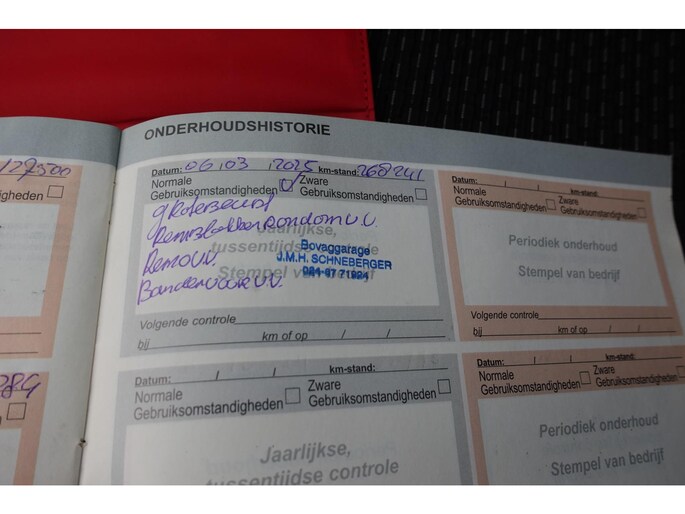 127500
ONDERHOUDSHISTORIE
Datum: 06, 03, 2025 km-stand: 268241
Normale Gebruiksomstandigheden
Zware Gebruiksomstandigheden
Remblokken rondom v.v.
Remo v.v.
Banden v.v.
Jaarlijkse,
tussentijdse controle
Stempel van bedrijf
Bovaggarage
J.M.H. SCHNEBERGER
Volgende controle
bij km of op / /
Datum: / / km-stand:
Normale Gebruiksomstandigheden
Zware Gebruiksomstandigheden
Jaarlijkse,
tussentijdse controle
Datum: / / km-stand:
Normale Gebruiksomstandigheden
Zware Gebruiksomstandigheden
Periodiek onderhoud
Stempel van bedrijf
Volgende controle
bij km of op / /
Datum: / / km-stand:
Normale Gebruiksomstandigheden
Zware Gebruiksomstandigheden
Periodiek onderhoud
Stempel van bedrijf